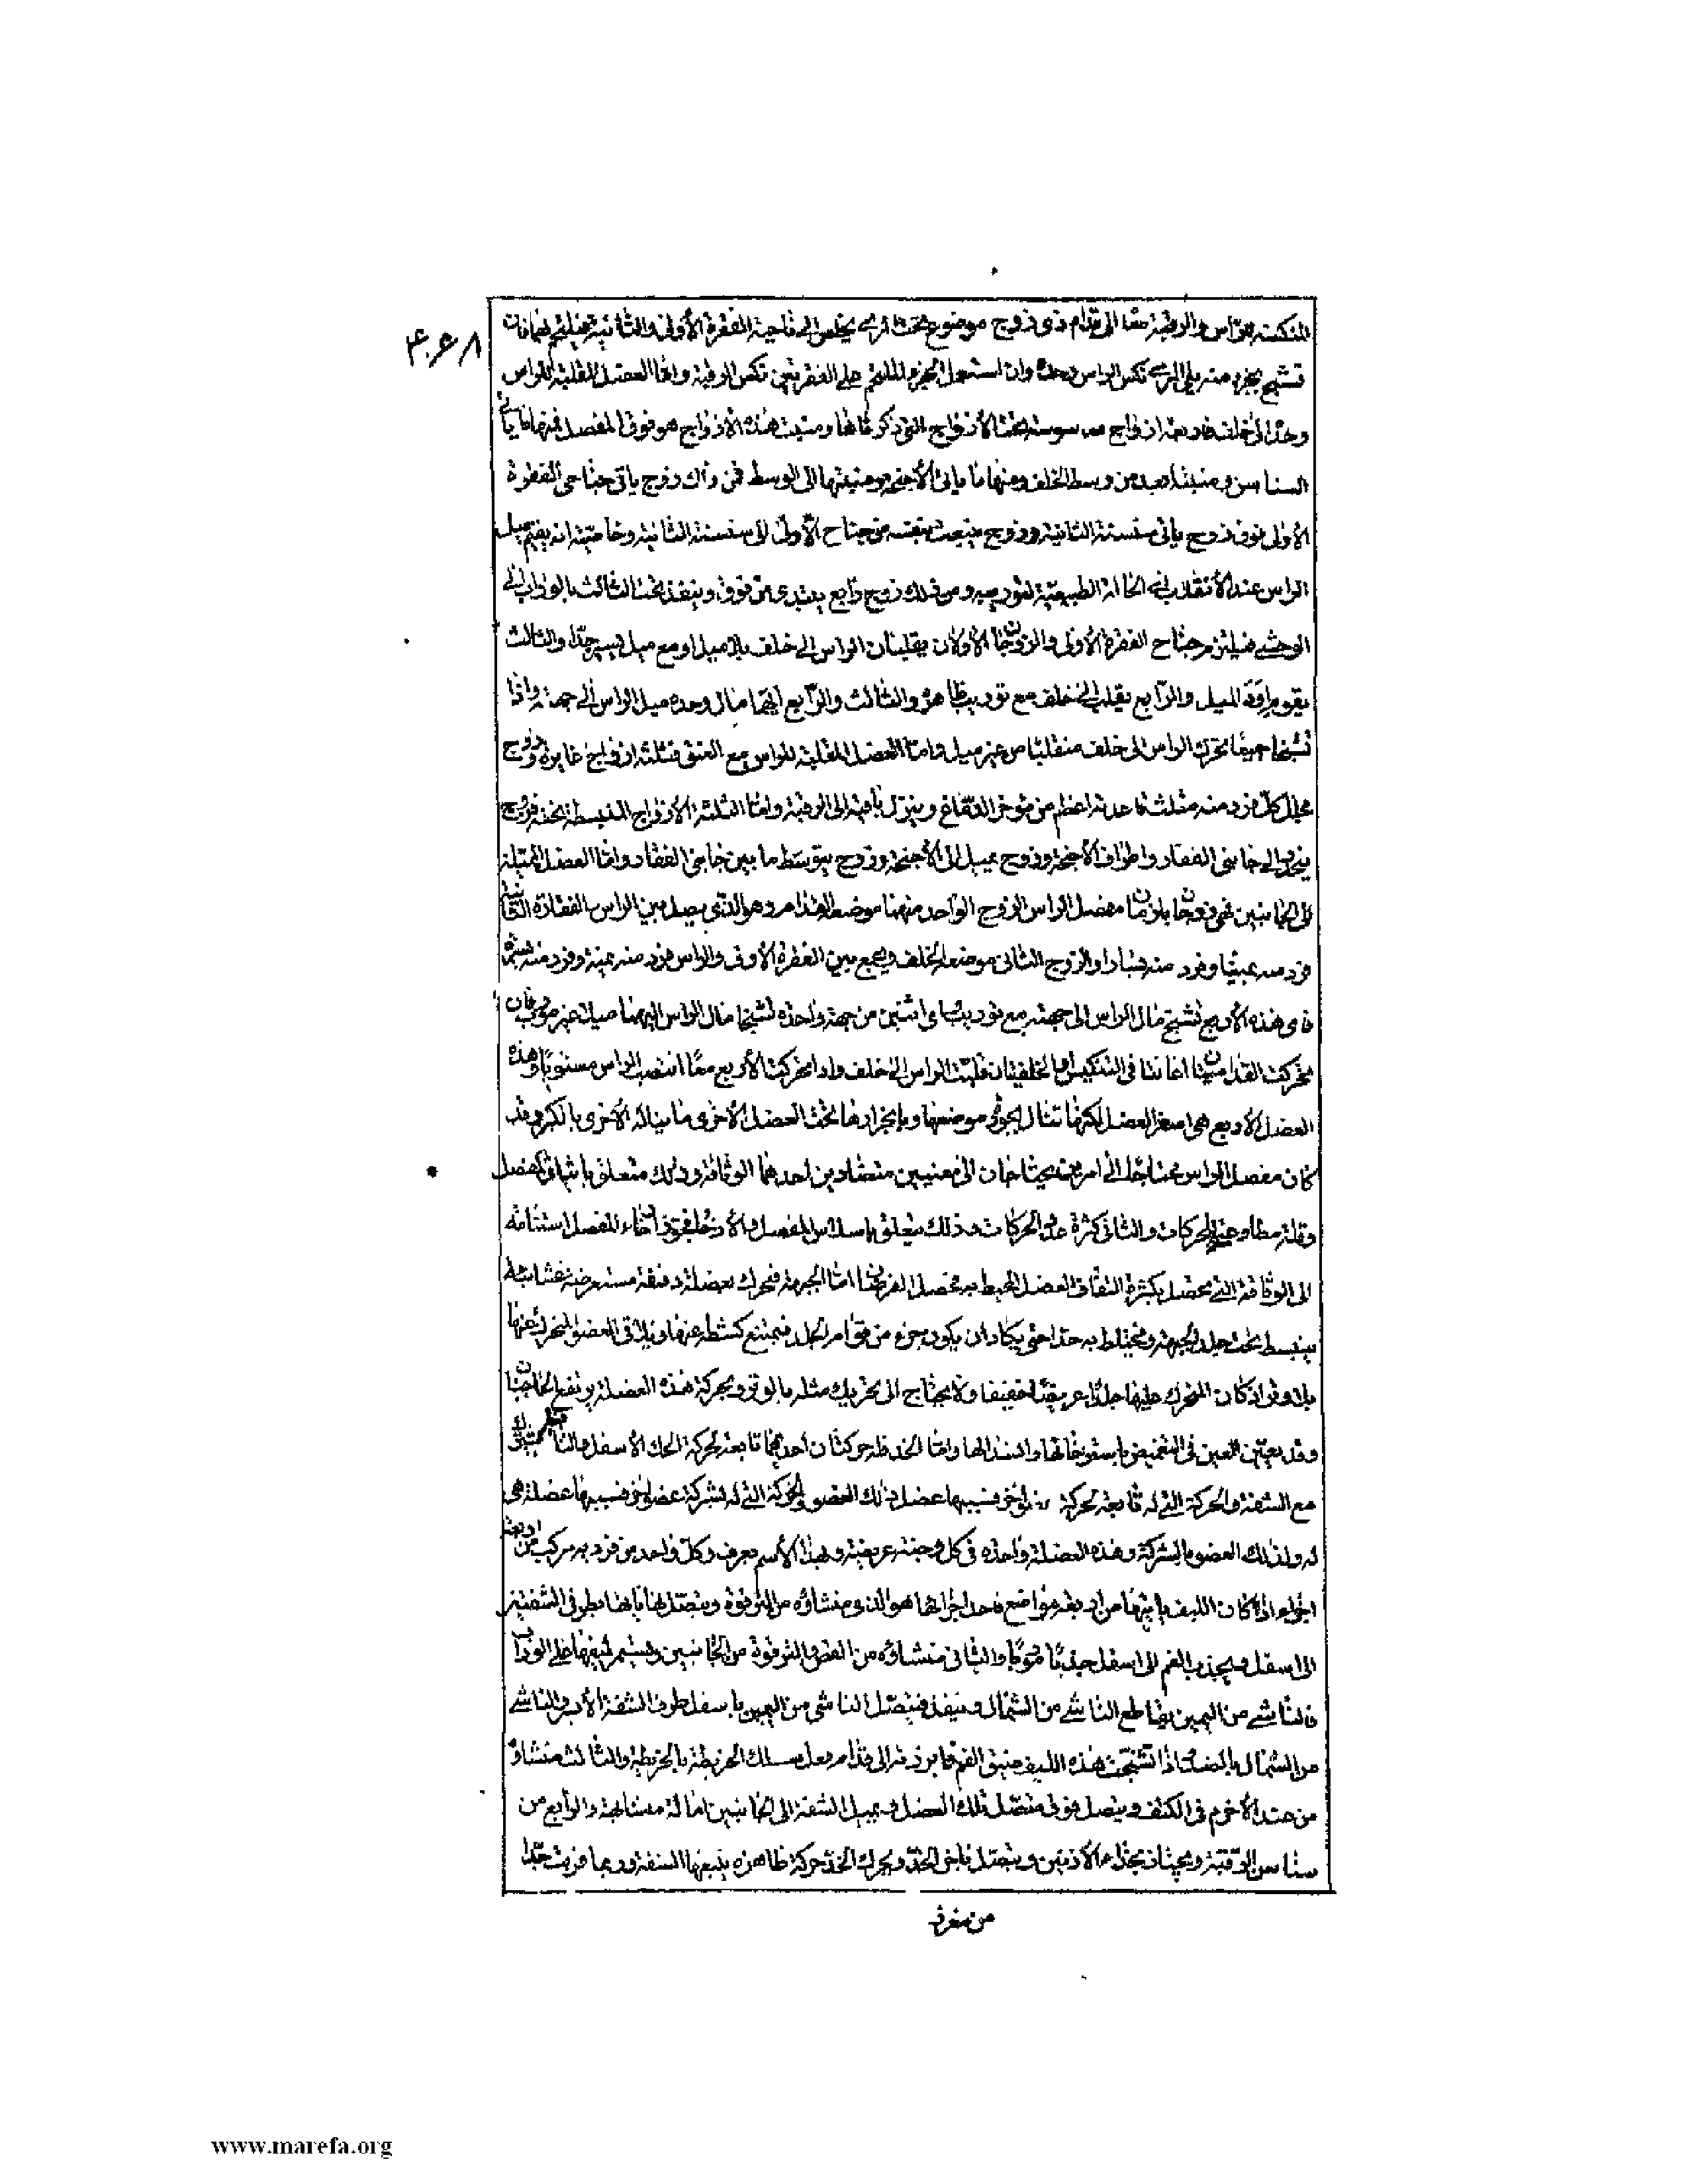 المنكسة للراس والرقبة معا الى قدام فهو زوج موضوع تحت المرى يخلص الى ناحية الفقرة الأولى والثانية فيلتحم بهما فان
تشنج بجزء منه يلى المرى نكس الراس وحده وان استعمل الجزء الملتحم على الفقرتين نكس الرقبة واما العضل المقلبة للراس
وحده الى خلف فاربعة ازواج مدسوسة تحت الأزواج التى ذكرناها ومنبت هذه الأزواج هو فوق المفصل فمنها ما ياتى
السناسن ومنبته ابعد من وسط الخلف ومنها ما ياتى الأجنحة ومنبتها الى الوسط فمن ذلك زوج ياتى جناحى الفقرة
الأولى فوق زوج ياتى سنسنة الثانية وزوج ينبعث ليفه من جناح الأولى الى سنسنة الثانية وخاصيته انه يقيم ميل
الراس عند الأنقلاب الى الحالة الطبيعية لتوريبه ومن ذلك زوج رابع يبتدى من فوق وينفذ تحت الثالث بالوراب الى
الوحشى فيلزم جناح الفقرة الأولى والزوجان الاولان يقلبان الراس الى خلف بلا ميل او مع ميل يسير جدا والثالث
يقوم اود الميل والرابع يقلب الى خلف مع توريب ظاهر والثالث والرابع ايهما مال وحده ميل الراس الى جهته واذا
تشنجا جميعا تحرك الراس الى خلف منقلبا من غير ميل واما العضل المقلبة للراس مع العنق فثلثة ازواج غايرة وزوج
مجلل كل فرد منه مثلث قاعدته اعظم من مؤخر الدماغ وينزل باقيه الى الرقبة واما الثلثة الأزواج المنبسطة تحته فزوج
ينحدر الى جانبى الفقار واطراف الأجنحة وزوج يميل الى الأجنحة وزوج يتوسط ما بين جانبى الفقار واما العضل المميلة
الى الجانبين فهى زوجان يلزمان مفصل الراس الزوج الواحد منهما موضعه القدام وهو الذى يصل بين الراس والفقارة الثانية
فرد منه يمينا وفرد منه يسارا والزوج الثانى موضعه الخلف ويجمع بين الفقرة الأولى والراس فرد منه يمنة وفرد منه يسرة
فاى هذه الأربع تشنج مال الراس الى جهته مع توريب واى اثنين من جهة واحدة تشنجا مال الراس اليهما ميلا غير مورب وان
تحركت القداميتان اعانتا فى التنكيس او الخلفيتان قلبتا الراس الى خلف واذا تحركت الأربع معا انتصب الراس مستويا وهذه
العضل الأربع هى اصغر العضل لكنها تنال بجودة موضعها وبانحرازها تحت العضل الأخرى ما يناله الأخرى بالكبر وقد
كان مفصل الراس محتاجا الى امرين يحتاجان الى معنيين متضادين احدهما الوثاقة وذلك متعلق بايثاق المفصل
وقلة مطاوعته للحركات والثانى كثرة عدد الحركات وذلك يتعلق باسلاس المفصل والأرخاء فجوز ارخاء المفصل استنامة
الى الوثاقة التى تحصل بكثرة التفاف العضل المحيط به فحصل الغرضان اما الجبهة فتحرك بعضلة دقيقة مستعرضة غشائية
ينبسط تحت جلد الجبهة ويختلط به جدا حتى يكاد ان يكون جزء من قوام الجلد فيمتنع كشطه عنها ويلاقى العضو المتحرك عنها
بلا وتر اذ كان المتحرك عنها جلدا عريضا خفيفا ولا يحتاج الى تحريك مثله بالوتر وبحركة هذه العضلة يرتفع الحاجبان
وقد يعين العين فى التغميض باسترخائها واما الخد فله حركتان احدهما تابعة لحركة الفك الأسفل والثانية بشركة
مع الشفة والحركة التى له تابعة لحركة عضو اخر فسببها عضل ذلك العضو والحركة التى له بشركة عضو اخر فسببها عضلة هى
له ولذلك العضو بالشركة وهذه العضلة واحدة فى كل وجنة عريضة وبهذا الأسم يعرف وكل واحد من فرديه مركب من اربعة
اجزاء اذا كان الليف ياتيها من اربعة مواضع فاحد اجزائها هو الذى منشاؤه من الترقوة ويتصل نهاياتها بطرفى الشفتين
الى اسفل ويجذب الفم الى اسفل جذبا موربا والثانى منشاؤه من القص والترقوة من الجانبين ويستمر ليفها على الوراب
فالناشى من اليمين يقاطع الناشى من الشمال وينفذ فيتصل الناشى من اليمين باسفل طرف الشفة الأيسر والناشى
من الشمال بالضد واذا تشنجت هذه الليف ضيق الفم فابرزته الى قدام فعل سلك الخريطة بالخريطة والثالث منشاؤه
من عند الأخرم فى الكتف ويتصل فوق متصل تلك العضل ويميل الشفة الى الجانبين امالة متشابهة والرابع من
سناسن الرقبة ويجتاز بحذاء الأذنين ويتصل باجزاء الخد ويحرك الخد حركة ظاهرة يتبعها الشفة وربما قربت جدا
من مغرز
۴۰۶۸
www.marefa.org